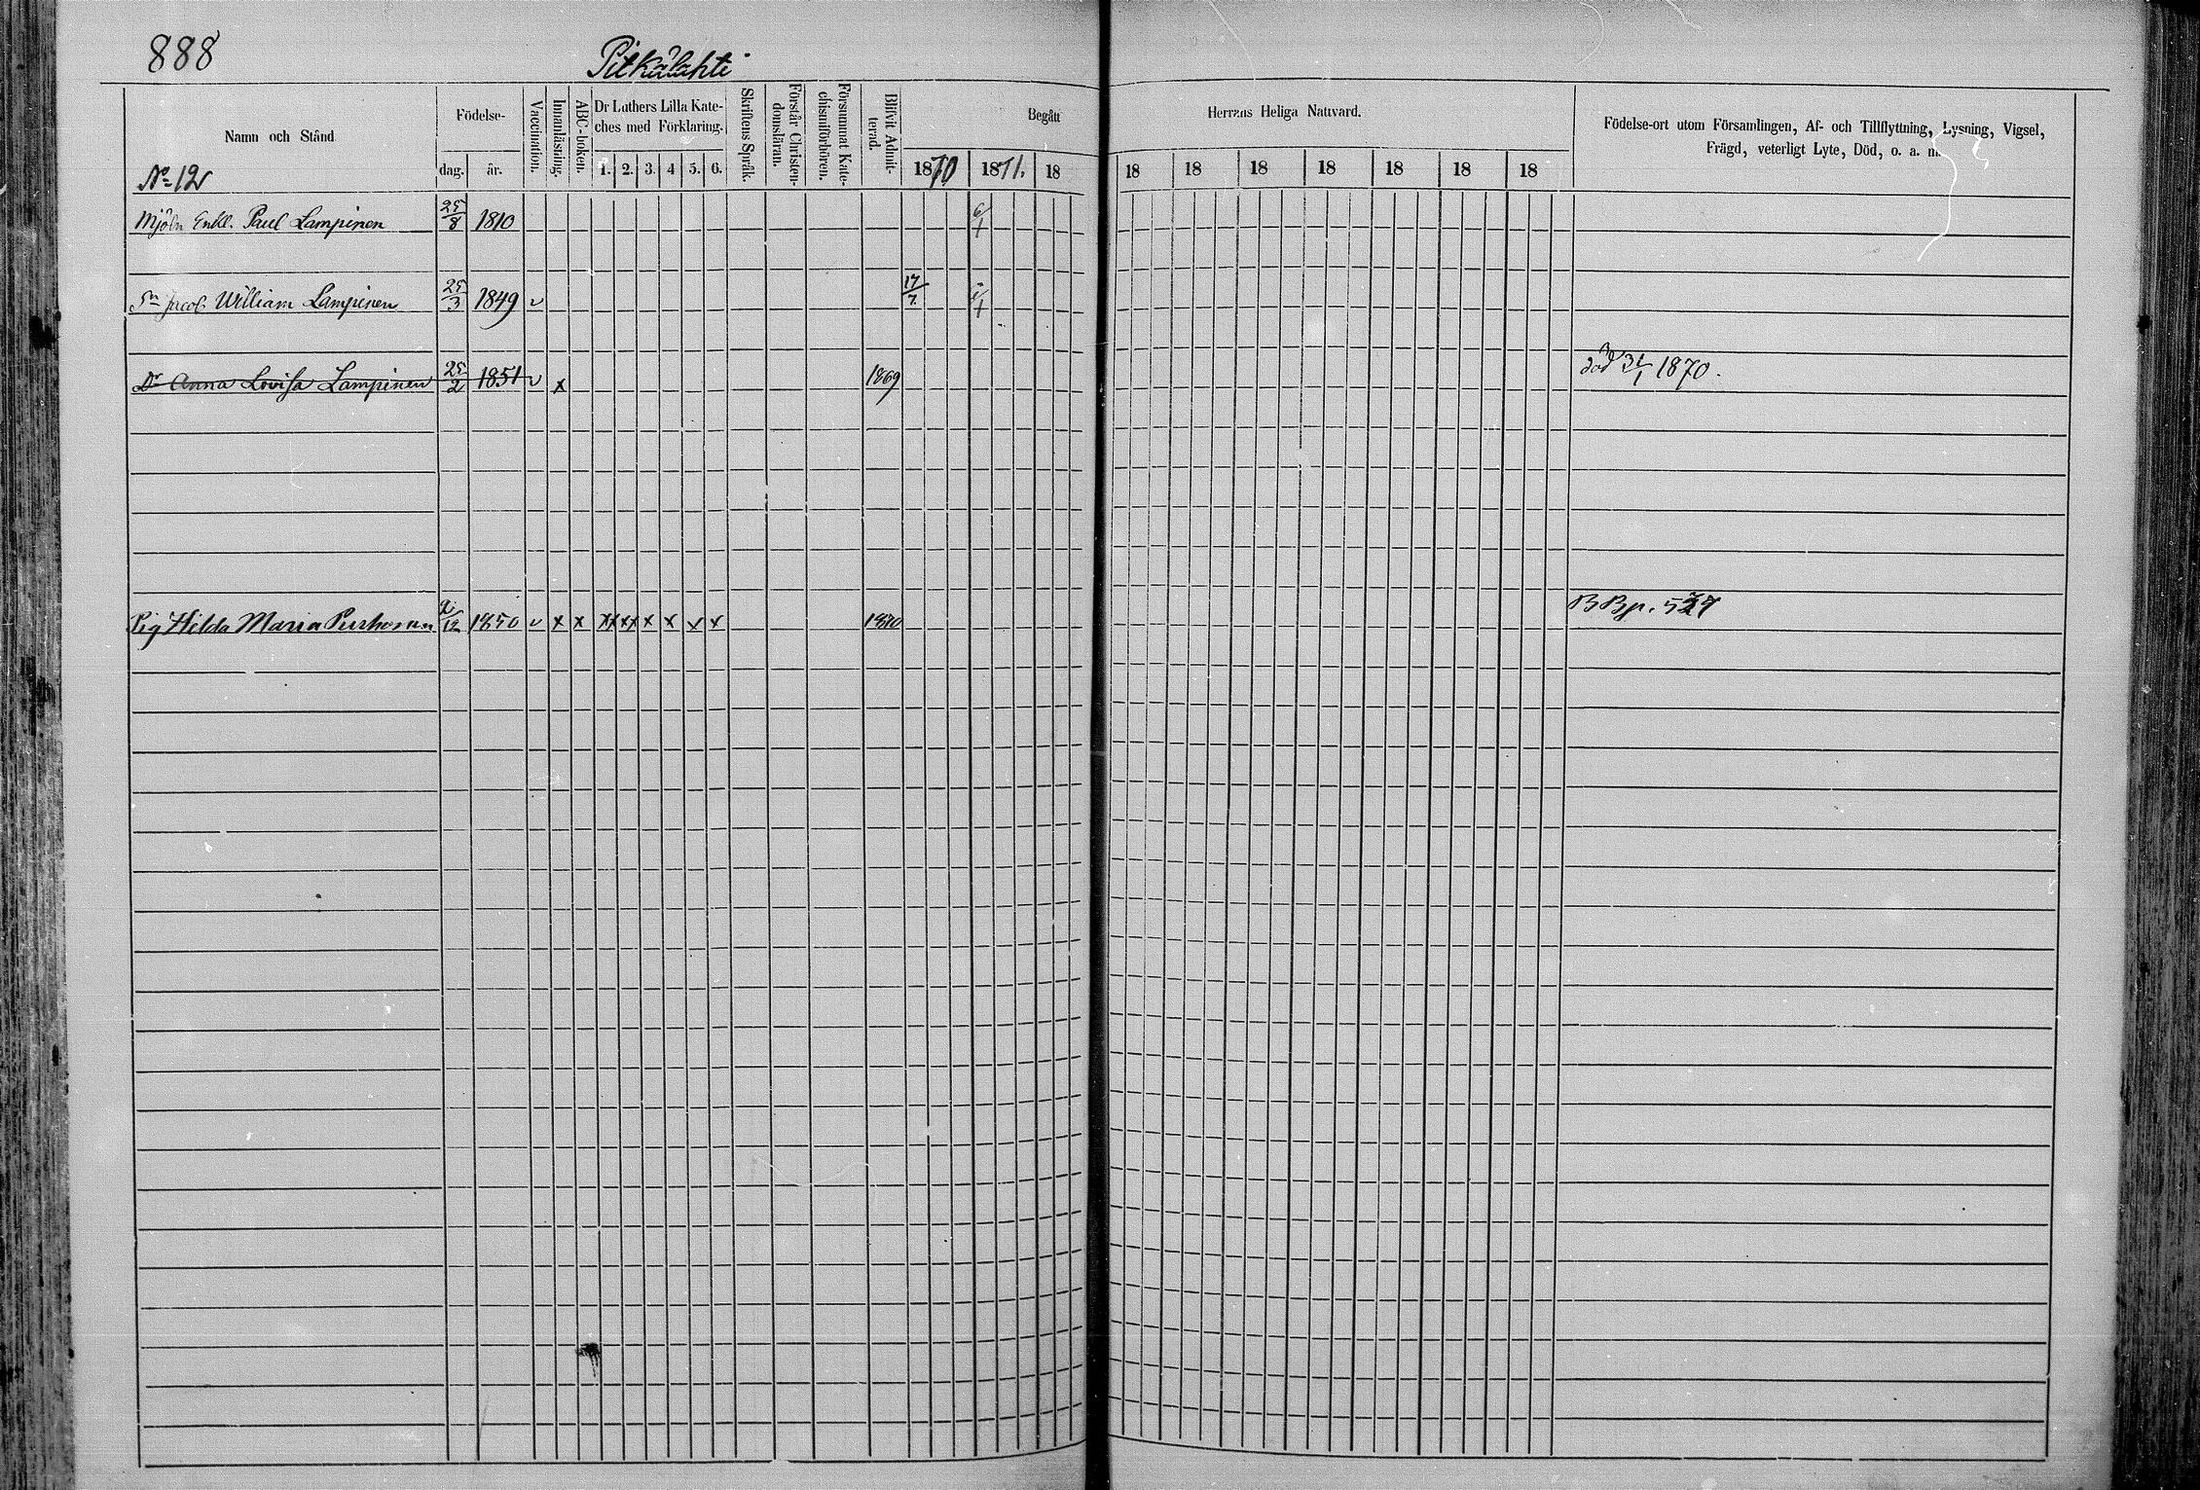 888
Pitkälahti
Namn och Stånd
Födelse-
dag.
år.
Vaccination.
Innanläsning.
ABC-boken.
Dr Luthers Lilla Kate-
ches med Förklaring.
1. 2. 3. 4 5. 6.
Skriftens Språk.
Förstår Christen-
domsläran.
Försummat Kate-
chismiförhören.
Blifvit Admit-
terad.
Begått
1870 1871. 18
Herrans Heliga Nattvard.
18 18 18 18 18 18 18
Födelse-ort utom Församlingen, Af- och Tillflyttning, Lysning, Vigsel,
Frägd, veterligt Lyte, Död, o. a. m.
No 12
Mjöln Enkl. Paul Lampinen 25/8 1810 6/1
Sn Jacob William Lampinen 25/3 1849 v 17/7
Dr Anna Lovisa Lampinen 25/2 1851 v x 1869 död 31/1 1870.
Pig Hilda Maria 1850 v x x xx xx x x v x 1870 BBp.